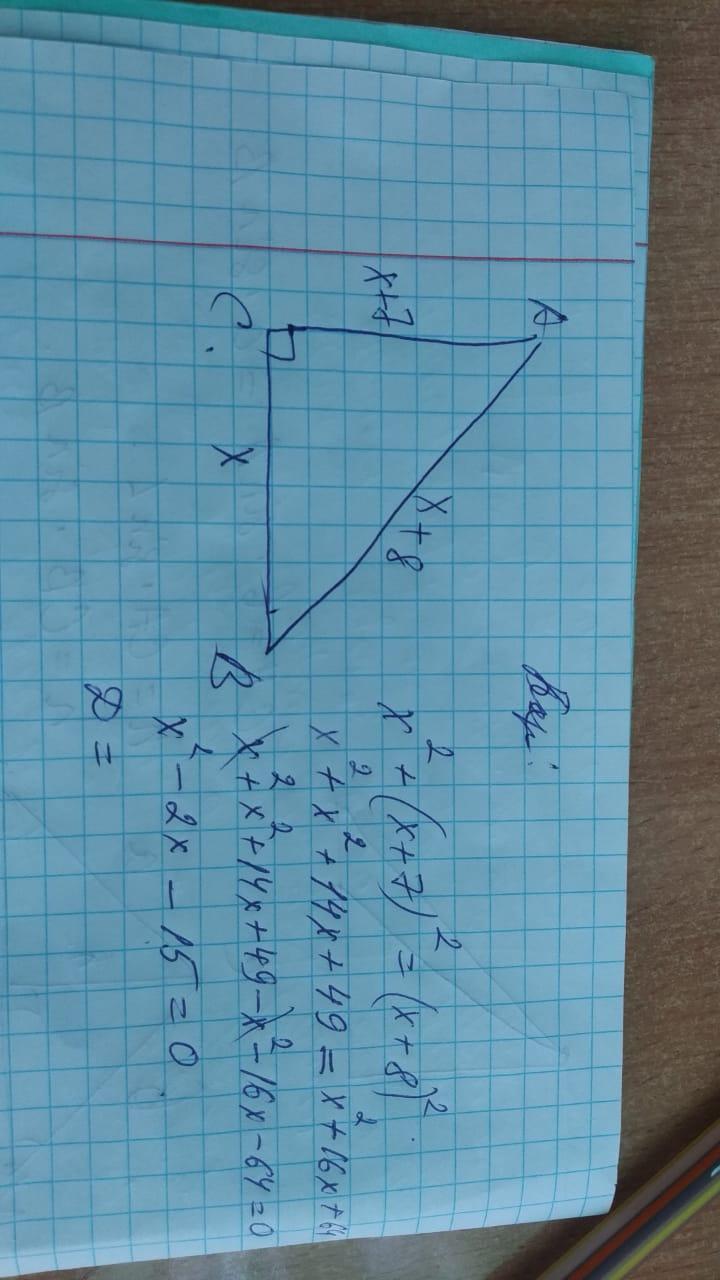 A
x+7
x+8
C
x
B
x² + (x+7)² = (x+8)²
x² + x² + 14x + 49 = x² + 16x + 64
x² + x² + 14x + 49 - x² - 16x - 64 = 0
x² - 2x - 15 = 0
D =